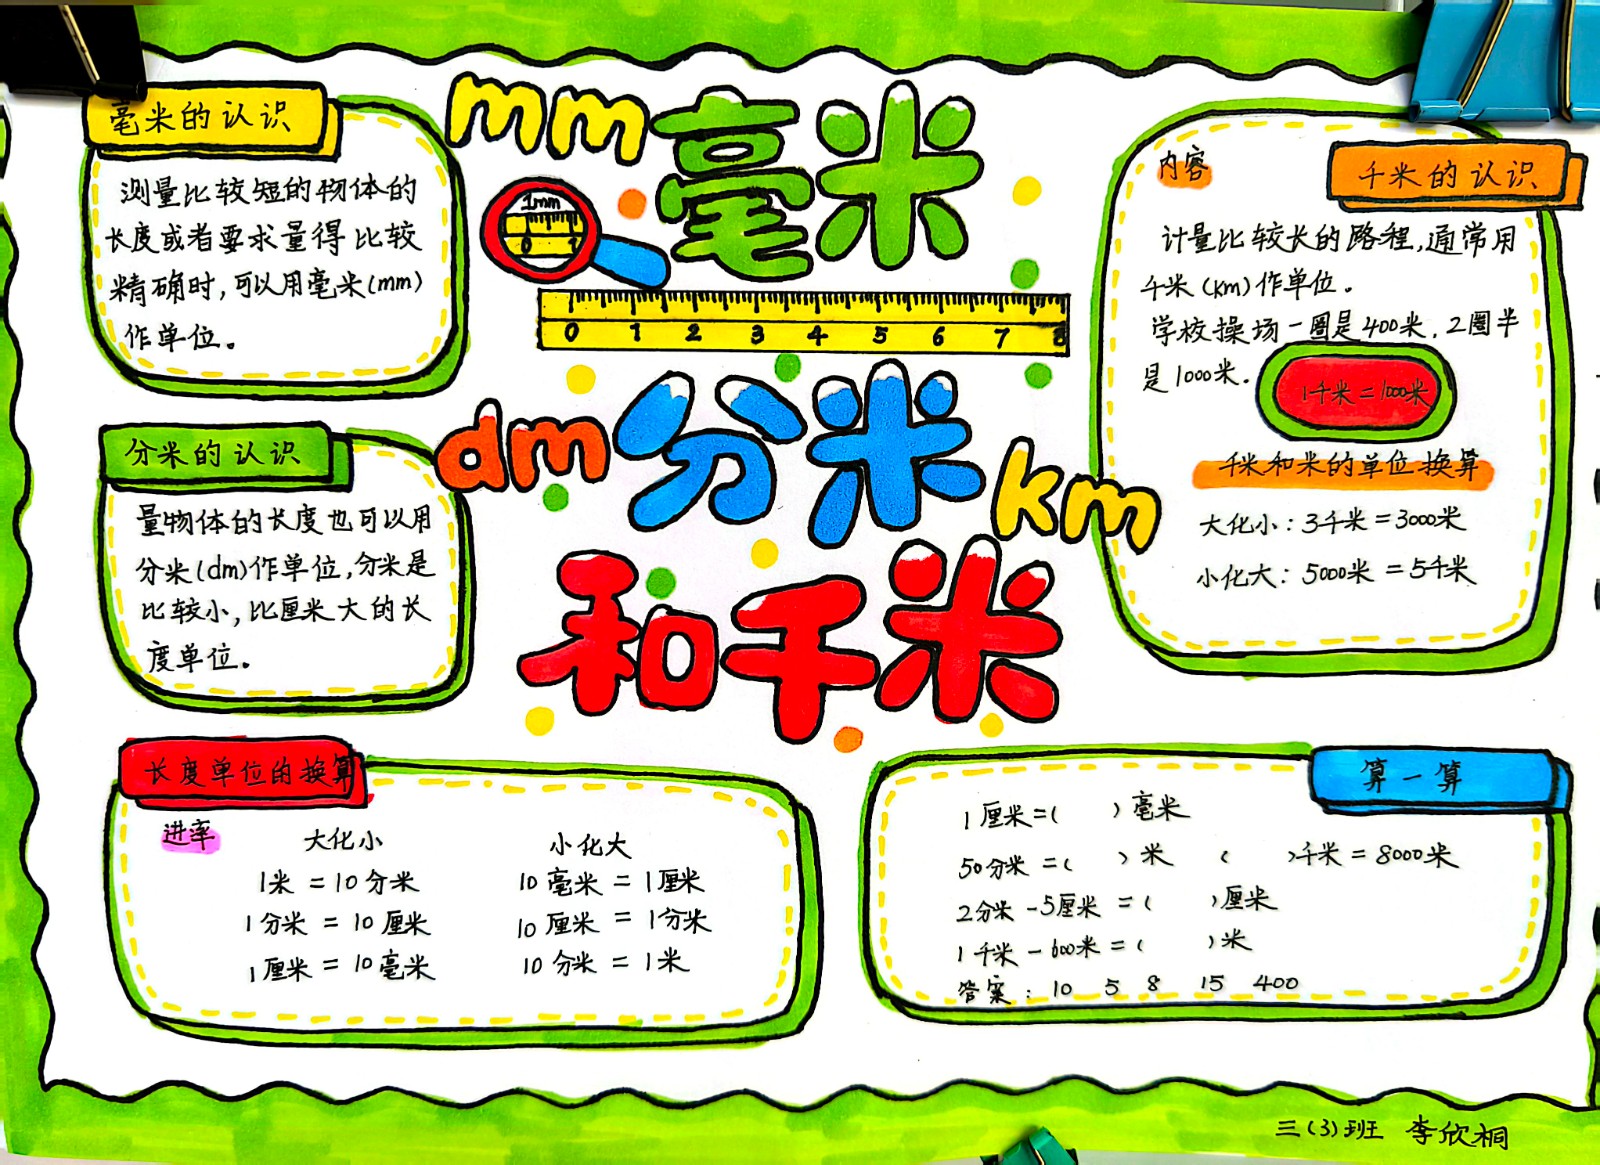 毫米的认识
测量比较短的物体的
长度或者要求量得比较
精确时,可以用毫米(mm)
作单位。
mm
毫米
1mm
0 1
0 1 2 3 4 5 6 7 8
dm
分米
km
和千米
千米的认识
内容
计量比较长的路程,通常用
千米(km)作单位。
学校操场一圈是400米,2圈半
是1000米.
1千米=1000米
千米和米的单位换算
大化小:3千米=3000米
小化大:5000米=5千米
分米的认识
量物体的长度也可以用
分米(dm)作单位,分米是
比较小,比厘米大的长
度单位。
长度单位的换算
进率
大化小 小化大
1米=10分米 10毫米=1厘米
1分米=10厘米 10厘米=1分米
1厘米=10毫米 10分米=1米
算一算
1厘米=( )毫米
50分米=( )米 ( )千米=8000米
2分米-5厘米=( )厘米
1千米-600米=( )米
答案: 10 5 8 15 400
三(3)班 李欣桐